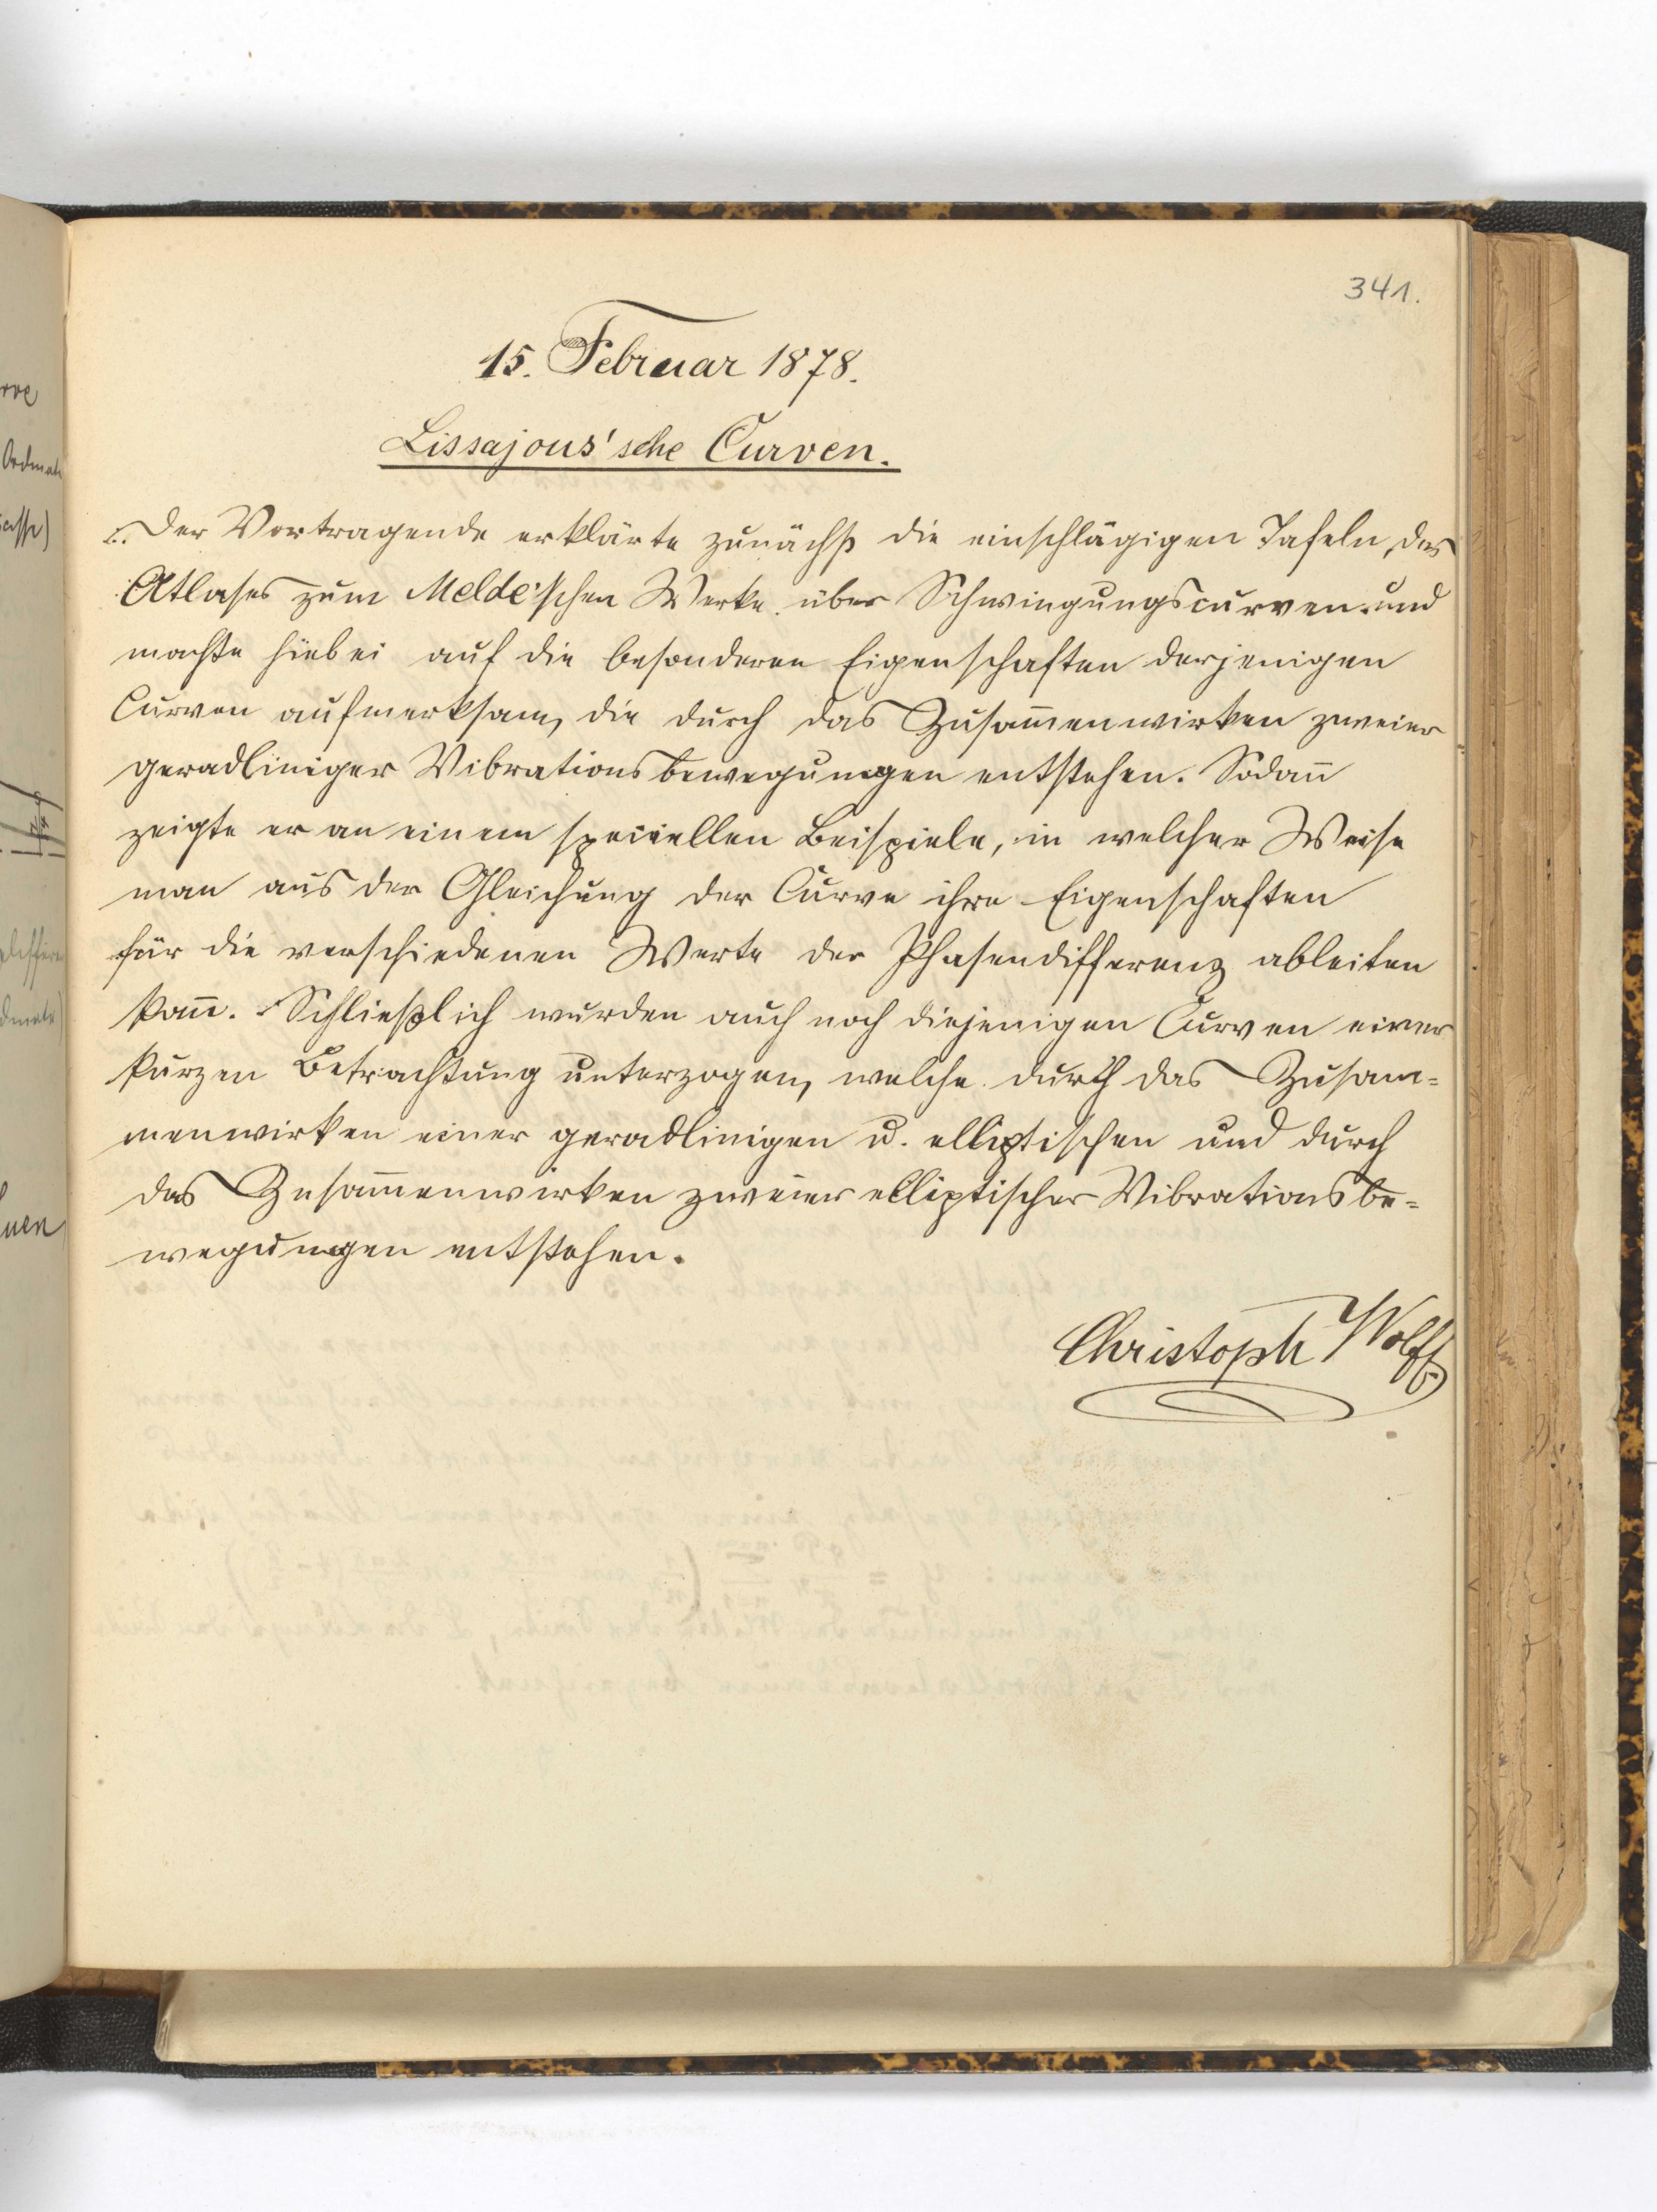 341.
15. Februar 1878.
Lissajous'sche Curven.
Der Vortragende erklärte zunächst die einschlägigen Tafeln des
Atlases zum Melde'schen Werke über Schwingungscurven und
machte hiebei auf die besonderen Eigenschaften derjenigen
Curven aufmerksam, die durch das Zusam̅enwirken zweier
geradliniger Vibrationsbewegungen entstehen. Sodan̅
zeigte er an einem speciellen Beispiele, in welcher Weise
man aus der Gleichung der Curve ihre Eigenschaften
für die verschiedenen Werte der Phasendifferenz ableiten
kan̅. Schließlich wurden auch noch diejenigen Curven einer
kurzen Betrachtung unterzogen, welche durch das Zusam=
menwirken einer geradlinigen u. elliptischen und durch
das Zusam̅enwirken zweier elliptischer Vibrationsbe=
wegungen entstehen.
Christoph Wolff